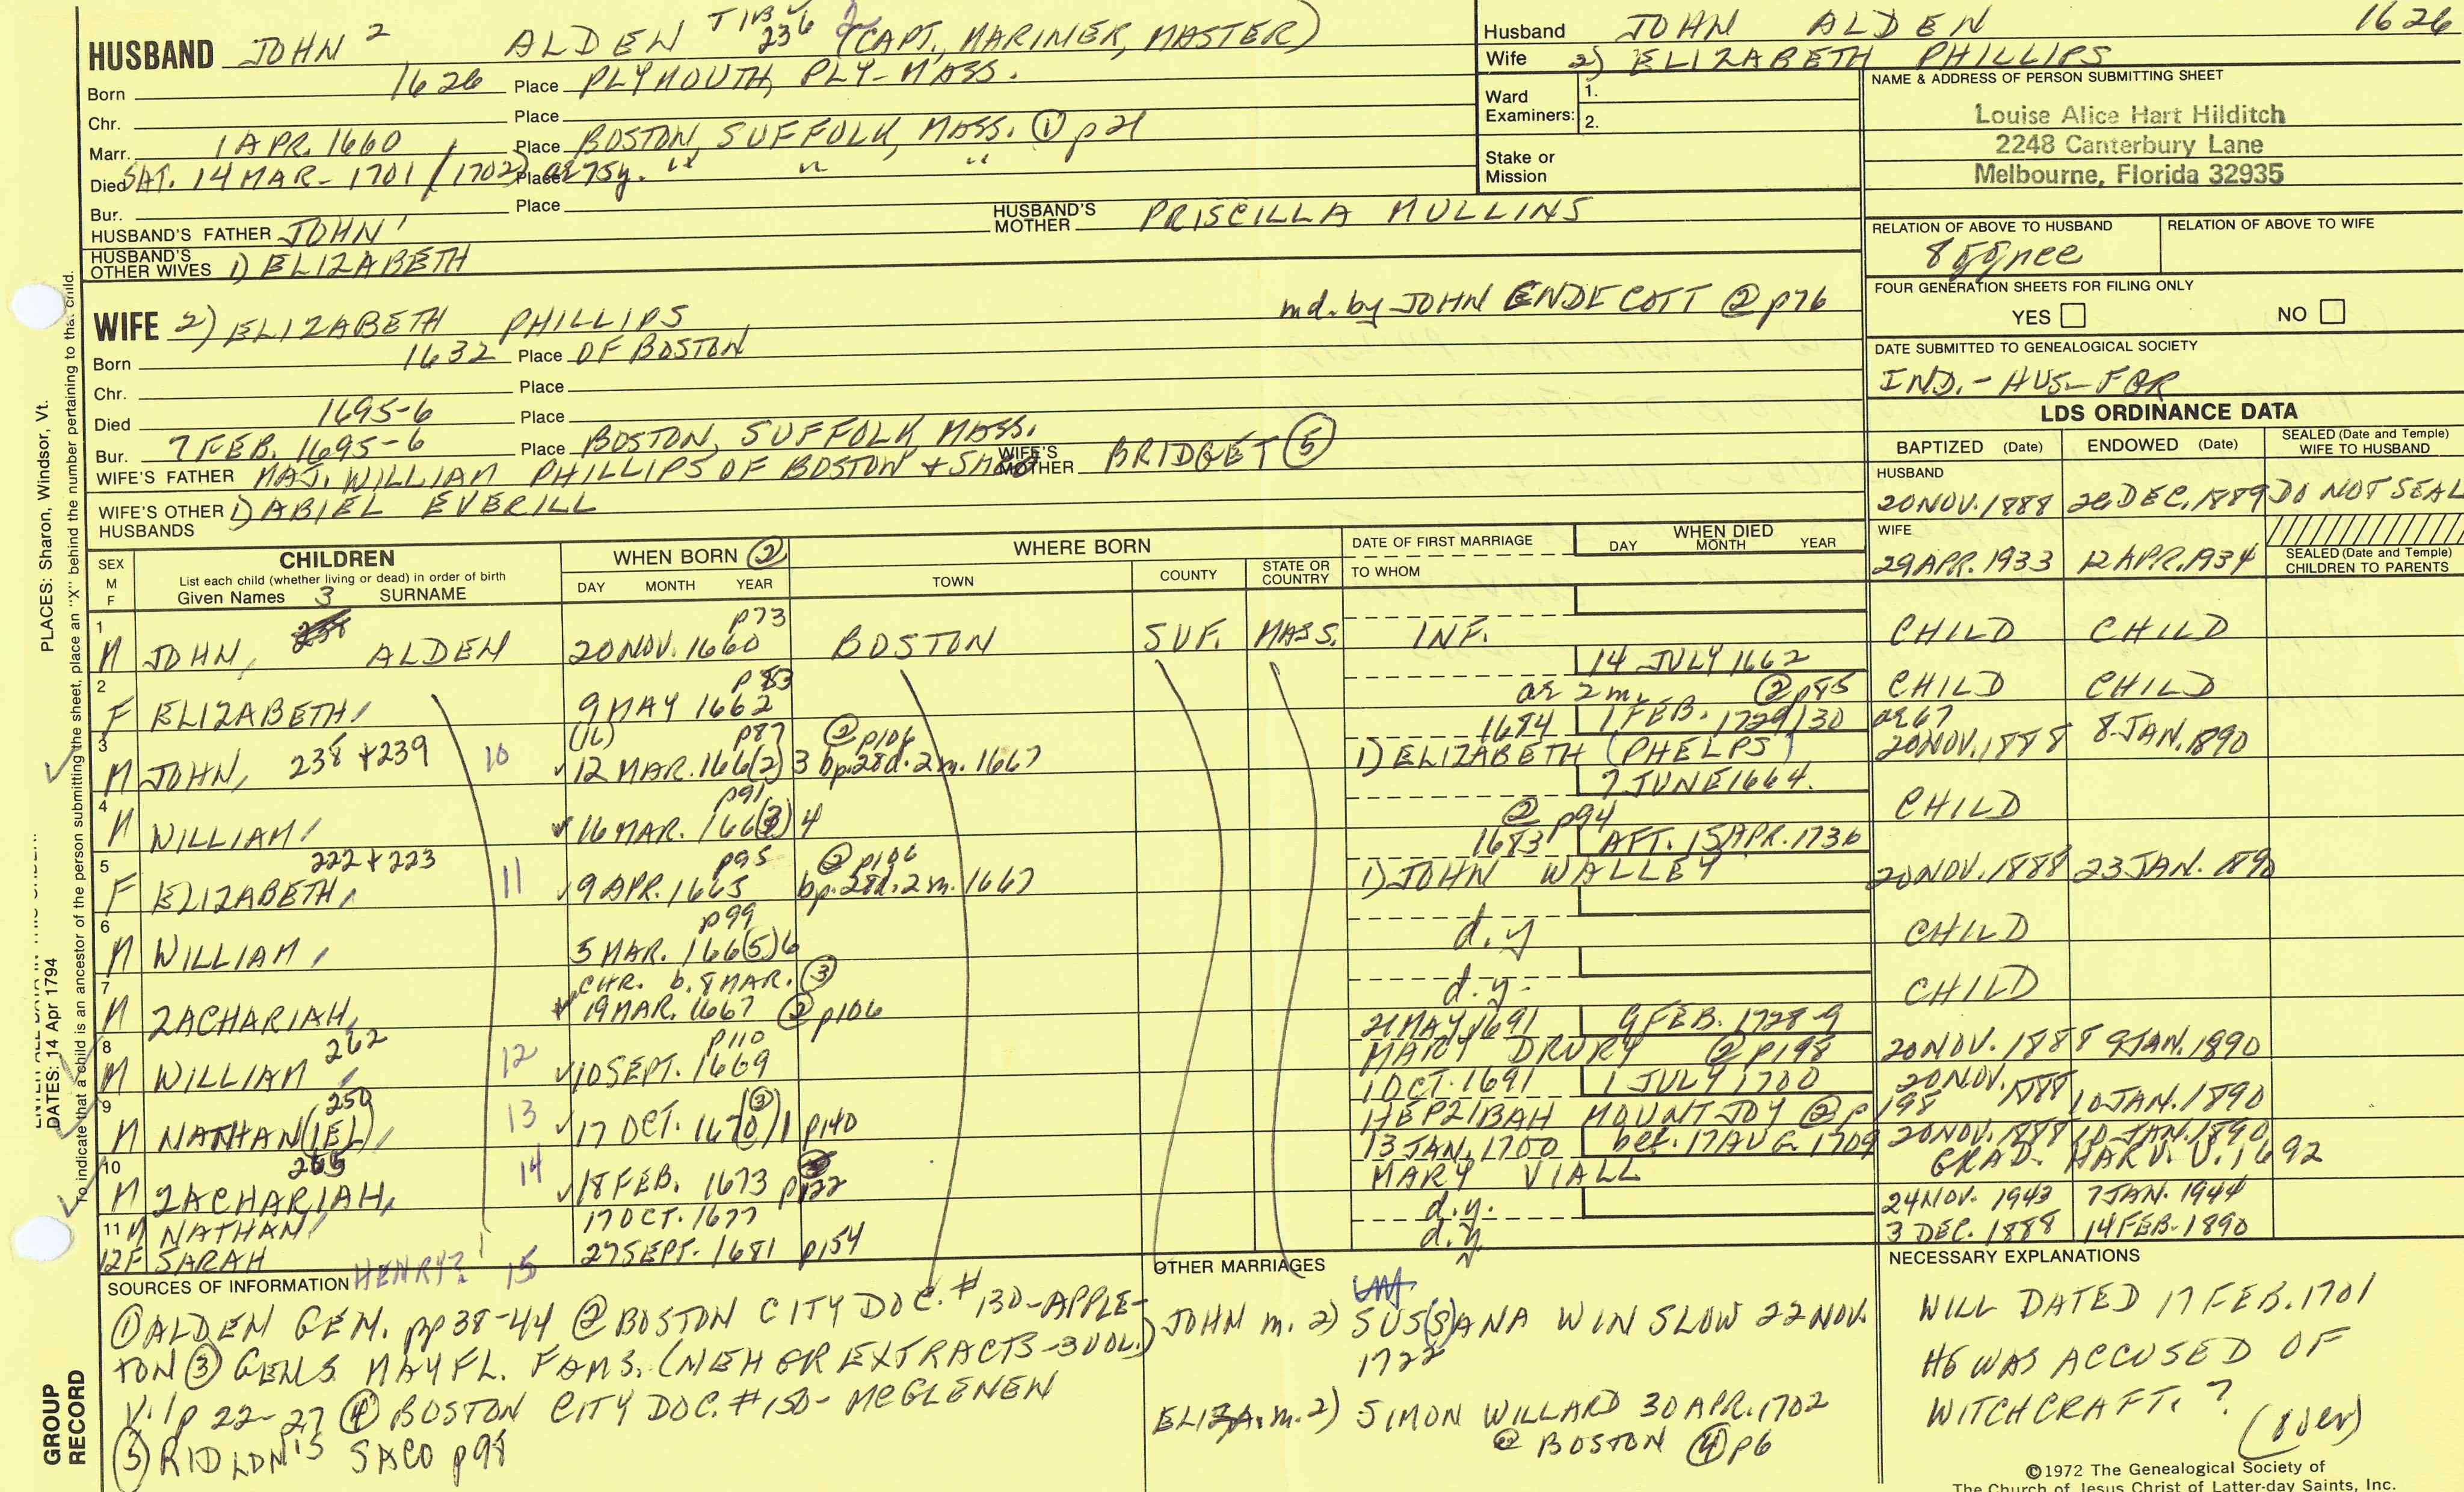 HUSBAND JOHN 2 ALDEN TIB 236 (CAPT., MARINER, MASTER)
Born 1626 Place PLYMOUTH, PLY-MASS.
Chr. Place
Marr. 1 APR. 1660 Place BOSTON, SUFFOLK, MASS. ① p 21
Died SAT. 14 MAR - 1701/1702) Place ae 75y. " " "
Bur. Place
HUSBAND'S FATHER JOHN 1 HUSBAND'S MOTHER PRISCILLA MULLINS
HUSBAND'S OTHER WIVES 1) ELIZABETH
md. by JOHN ENDECOTT ② p76
WIFE 2) ELIZABETH PHILLIPS
Born 1632 Place OF BOSTON
Chr. Place
Died 1695-6 Place
Bur. 7 FEB. 1695-6 Place BOSTON, SUFFOLK, MASS.
WIFE'S FATHER MAJ. WILLIAM PHILLIPS OF BOSTON + SACO WIFE'S MOTHER BRIDGET ⑤
WIFE'S OTHER HUSBANDS 1) ABIEL EVERILL
Husband JOHN ALDEN 1626
Wife 2) ELIZABETH PHILLIPS
Ward Examiners: 1.
2.
Stake or Mission
NAME & ADDRESS OF PERSON SUBMITTING SHEET
Louise Alice Hart Hilditch
2248 Canterbury Lane
Melbourne, Florida 32935
RELATION OF ABOVE TO HUSBAND RELATION OF ABOVE TO WIFE
8 ggnee
FOUR GENERATION SHEETS FOR FILING ONLY
YES NO
DATE SUBMITTED TO GENEALOGICAL SOCIETY
IND. - HUS - FOR
LDS ORDINANCE DATA
BAPTIZED (Date) ENDOWED (Date) SEALED (Date and Temple) WIFE TO HUSBAND
HUSBAND
20 NOV. 1888 26 DEC. 1889 DO NOT SEAL
WIFE
29 APR. 1933 12 APR. 1934 SEALED (Date and Temple) CHILDREN TO PARENTS
SEX M F CHILDREN WHEN BORN ② WHERE BORN DATE OF FIRST MARRIAGE WHEN DIED
List each child (whether living or dead) in order of birth DAY MONTH YEAR TOWN COUNTY STATE OR COUNTRY TO WHOM DAY MONTH YEAR
Given Names 3 SURNAME
1 M JOHN, ALDEN 20 NOV. 1660 p73 BOSTON SUF. MASS. INF. CHILD CHILD
14 JULY 1662
2 F ELIZABETH, 9 MAY 1662 p83 ae 2m. ② p85 CHILD CHILD
1684 1 FEB. 1729/30 ae 67
3 M JOHN, 238 + 239 10 (16) p87 12 MAR. 166(2)3 ② p106 bp. 28d. 2m. 1667 1) ELIZABETH (PHELPS) 20 NOV. 1888 8 JAN. 1890
7 JUNE 1664.
4 M WILLIAM, p91 16 MAR. 166(3)4 ② p94 CHILD
1683 AFT. 15 APR. 1736
5 F ELIZABETH, 222 + 223 11 p95 9 APR. 1665 ② p106 bp. 28d. 2m. 1667 1) JOHN WALLEY 20 NOV. 1888 23 JAN. 1890
6 M WILLIAM, p99 5 MAR. 166(5)6 d.y CHILD
7 M ZACHARIAH, CHR. b. 8 MAR. ③ 19 MAR. 1667 ② p106 d.y. CHILD
21 MAY 1691 9 FEB. 1728-9
8 M WILLIAM, 262 12 p110 10 SEPT. 1669 MARY DRURY ② p198 20 NOV. 1888 9 JAN. 1890
1 OCT. 1691 1 JULY 1700
9 M NATHAN(IEL), 250 13 17 OCT. 1670/1 ③ p140 HEPZIBAH MOUNTJOY ② p198 20 NOV. 1888 10 JAN. 1890
13 JAN. 1700 bef. 17 AUG. 1709 20 NOV. 1888 10 JAN. 1890
10 M ZACHARIAH, 14 18 FEB. 1673 p122 MARY VIALL GRAD. HARV. U. 1692
11 M NATHAN, 17 OCT. 1677 d.y. 24 NOV. 1943 7 JAN. 1944
12 F SARAH 27 SEPT. 1681 p154 d.y. 3 DEC. 1888 14 FEB. 1890
HENRY? 15
SOURCES OF INFORMATION
① ALDEN GEN. pp 38-44 ② BOSTON CITY DOC. #130-APPLE-
TON ③ GENS. MAYFL. FAMS. (NEHGR EXTRACTS-3 VOL.)
V. 1 p 22-27 ④ BOSTON CITY DOC. #150- MCGLENEN
⑤ RIDLON'S SACO p98
OTHER MARRIAGES
JOHN m. 2) SUS(S)ANA WINSLOW 22 NOV.
1722
ELIZA. m. 2) SIMON WILLARD 30 APR. 1702
@ BOSTON ④ p6
NECESSARY EXPLANATIONS
WILL DATED 17 FEB. 1701
HE WAS ACCUSED OF
WITCHCRAFT. ?
(over)
©1972 The Genealogical Society of
The Church of Jesus Christ of Latter-day Saints, Inc.
PLACES: Sharon, Windsor, Vt.
To indicate that a child is an ancestor of the person submitting the sheet, place an "X" behind the number pertaining to that child.
DATES: 14 Apr 1794
GROUP RECORD